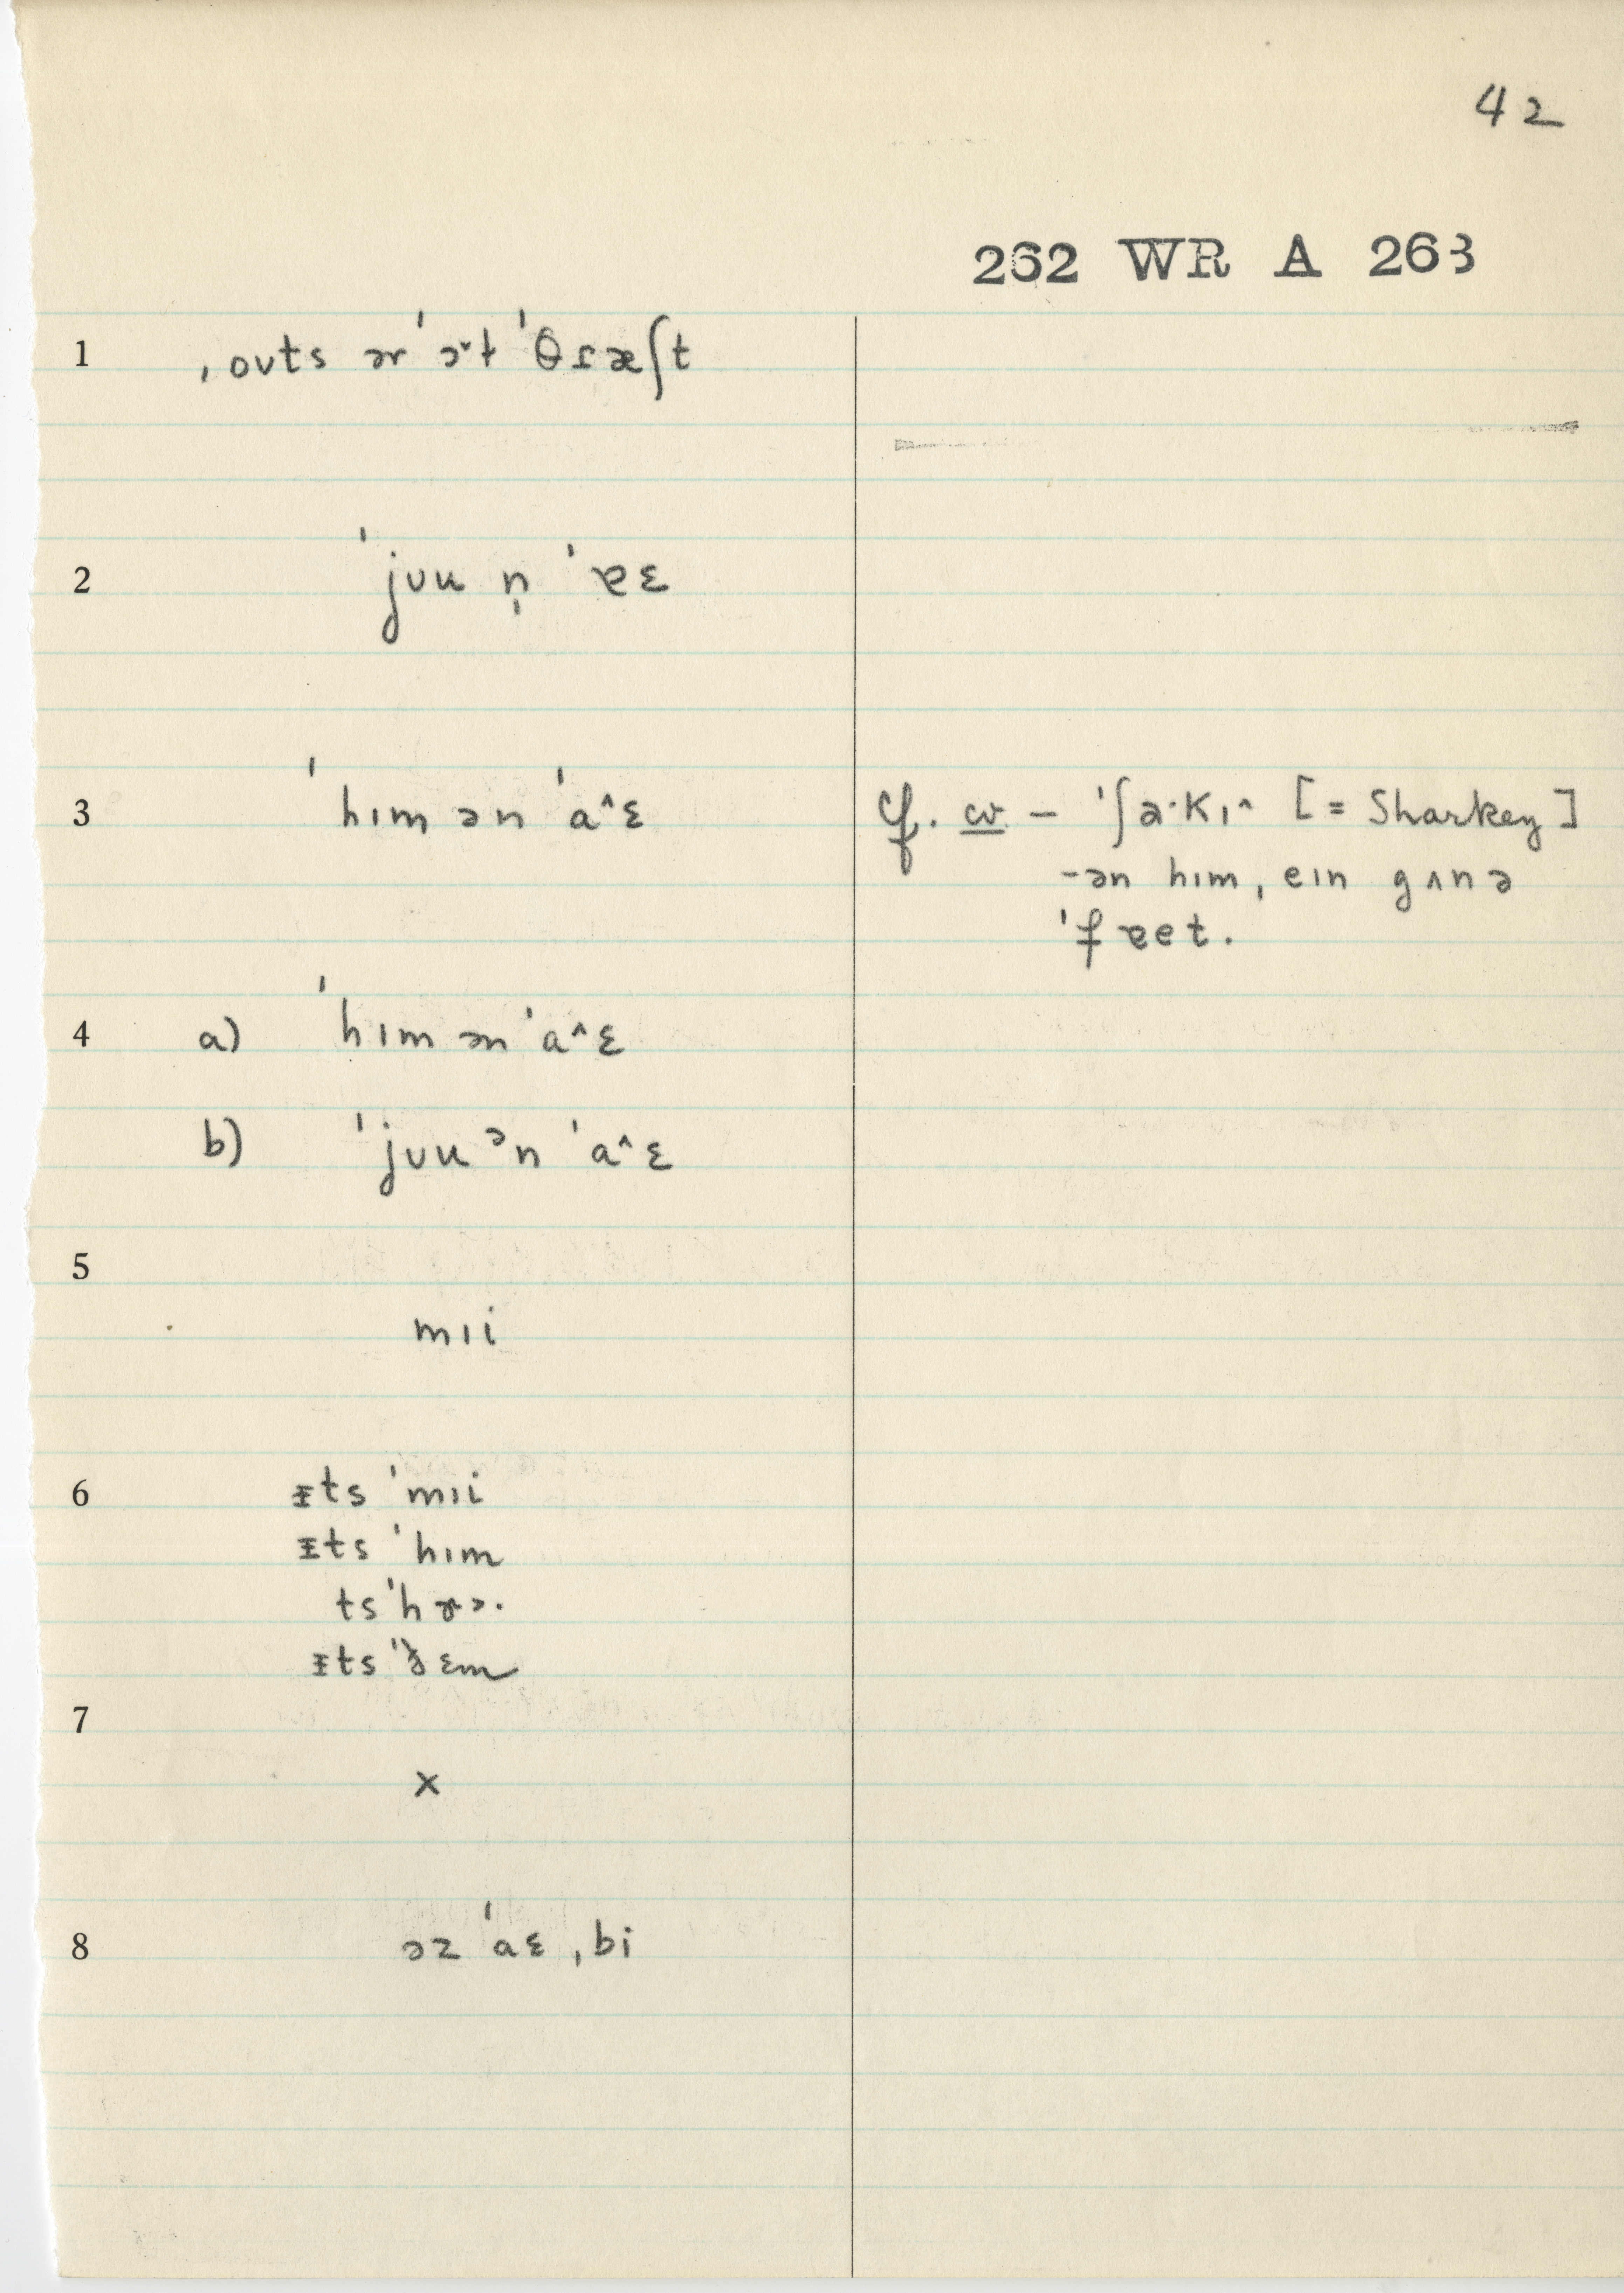 42
262 WR A 263
1 ˌouts ər ˈɔ˞ɫ ˈθɾæʃt
2 ˈjuu n̩ ˈɐɛ
3 ˈhɪm ən ˈa^ɛ
cf. cw – ˈʃa·kɪ^ [= Sharkey]
-ən hɪm, eɪn gʌnə
ˈfɐet.
4 a) ˈhɪm ən ˈa^ɛ
b) ˈjuu ᵊn ˈa^ɛ
5
mɪi
6 ᵻts ˈmɪi
ᵻts ˈhɪm
ts ˈhɚ·
ᵻts ˈðɛm
7
x
8 əz ˈaɛ ˌbi